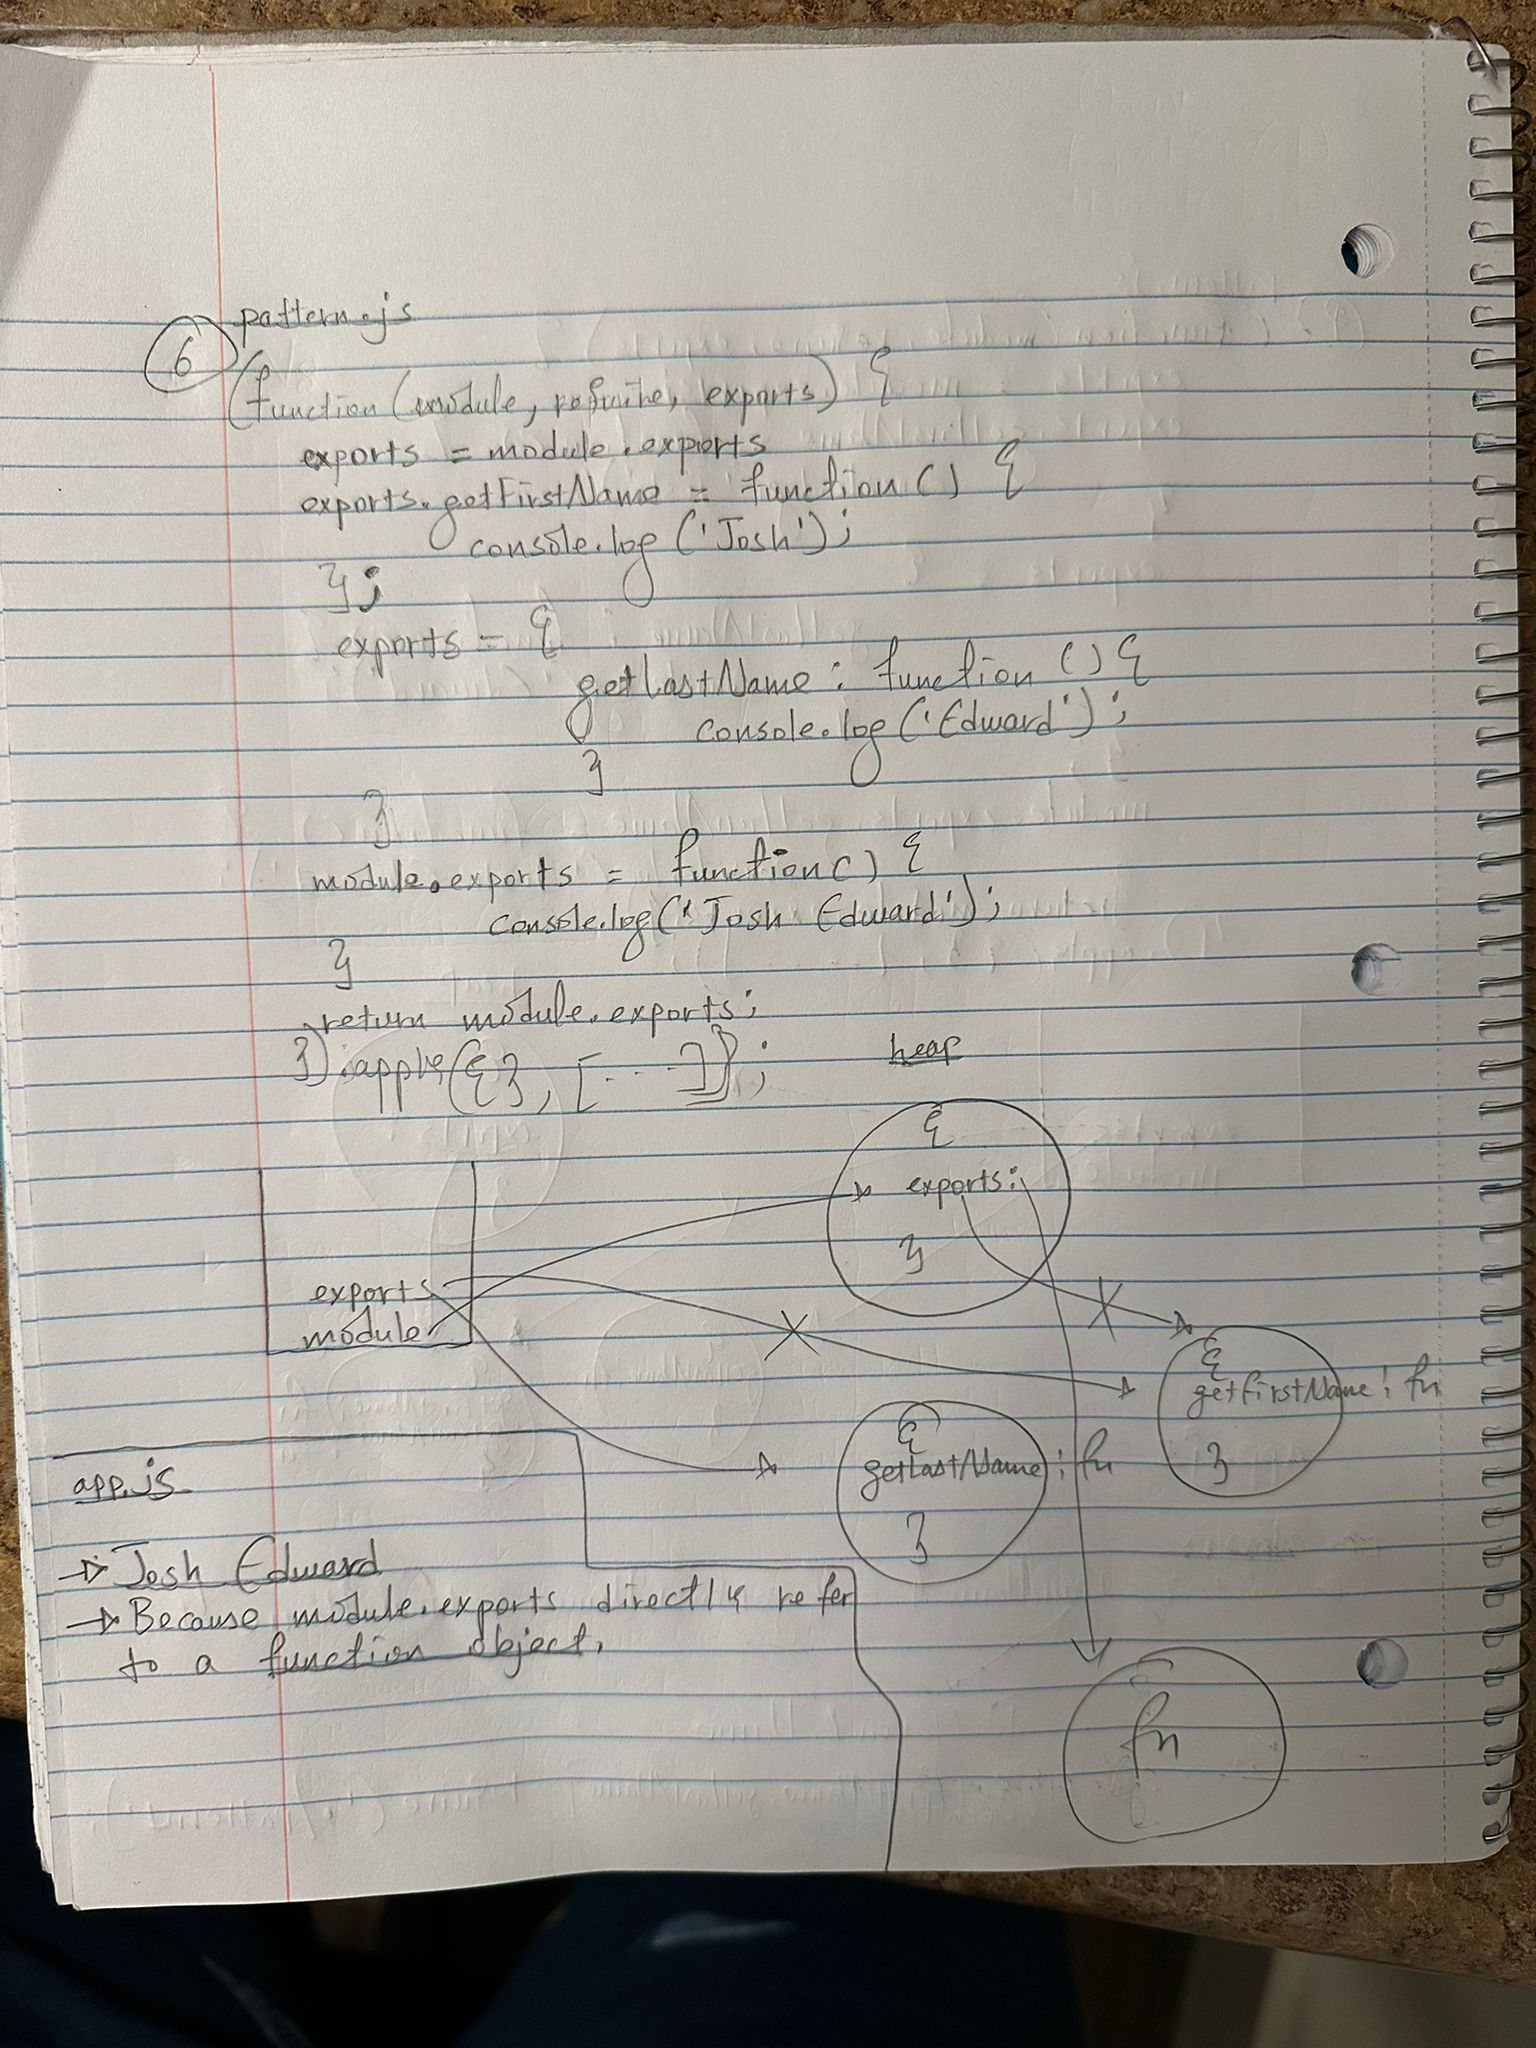 6 pattern.js
(function(module, require, exports) {
exports = module.exports
exports.getFirstName = function() {
console.log('Josh');
};
exports = {
getLastName: function() {
console.log('Edward');
}
}
module.exports = function() {
console.log('Josh Edward');
}
return module.exports;
}).apply({}, [...]);
heap
{
exports:
}
exports
module
{
getFirstName: fn
}
{
getLastName: fn
}
app.js
→ Josh Edward
→ Because module.exports directly refer
to a function object.
fn